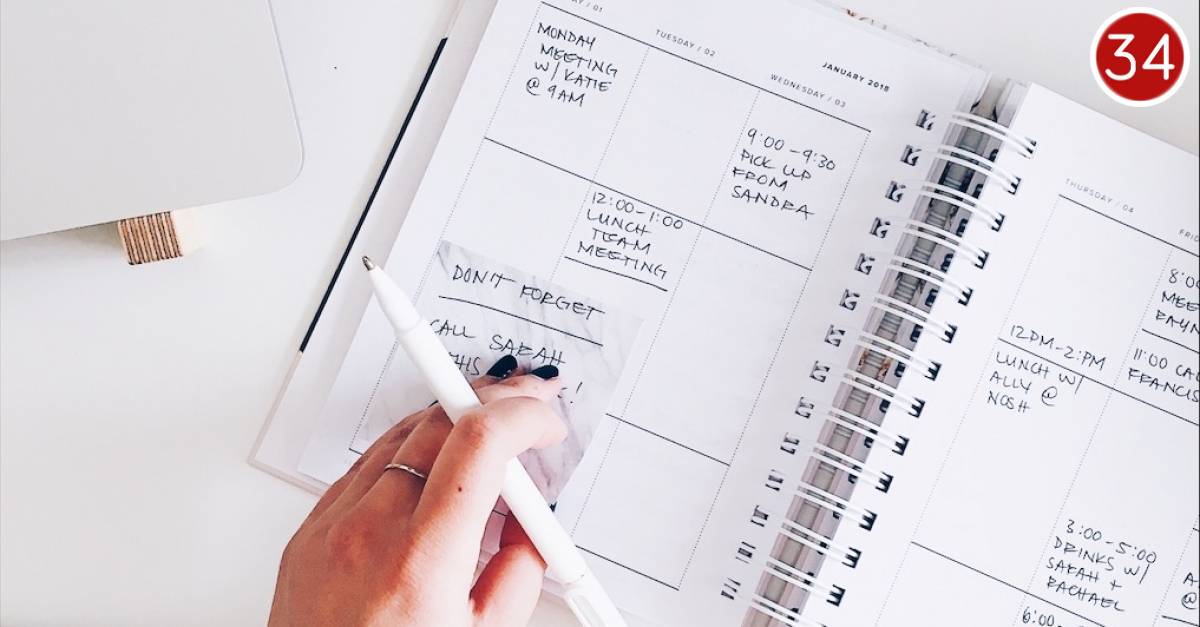 34
AY / 01
MONDAY
MEETING
W/ KATIE
@ 9AM
TUESDAY / 02
12:00-1:00
LUNCH
TEAM
MEETING
JANUARY 2018
WEDNESDAY / 03
9:00-9:30
PICK UP
FROM
SANDRA
DON'T FORGET
CALL SARAH
THIS !
THURSDAY / 04
12PM-2PM
LUNCH W/
ALLY @
NOSH
3:00-5:00
DRINKS W/
SARAH +
RACHAEL
6:00
FRID
8:00
MEE
11:00 CAL
FRANCIS
@